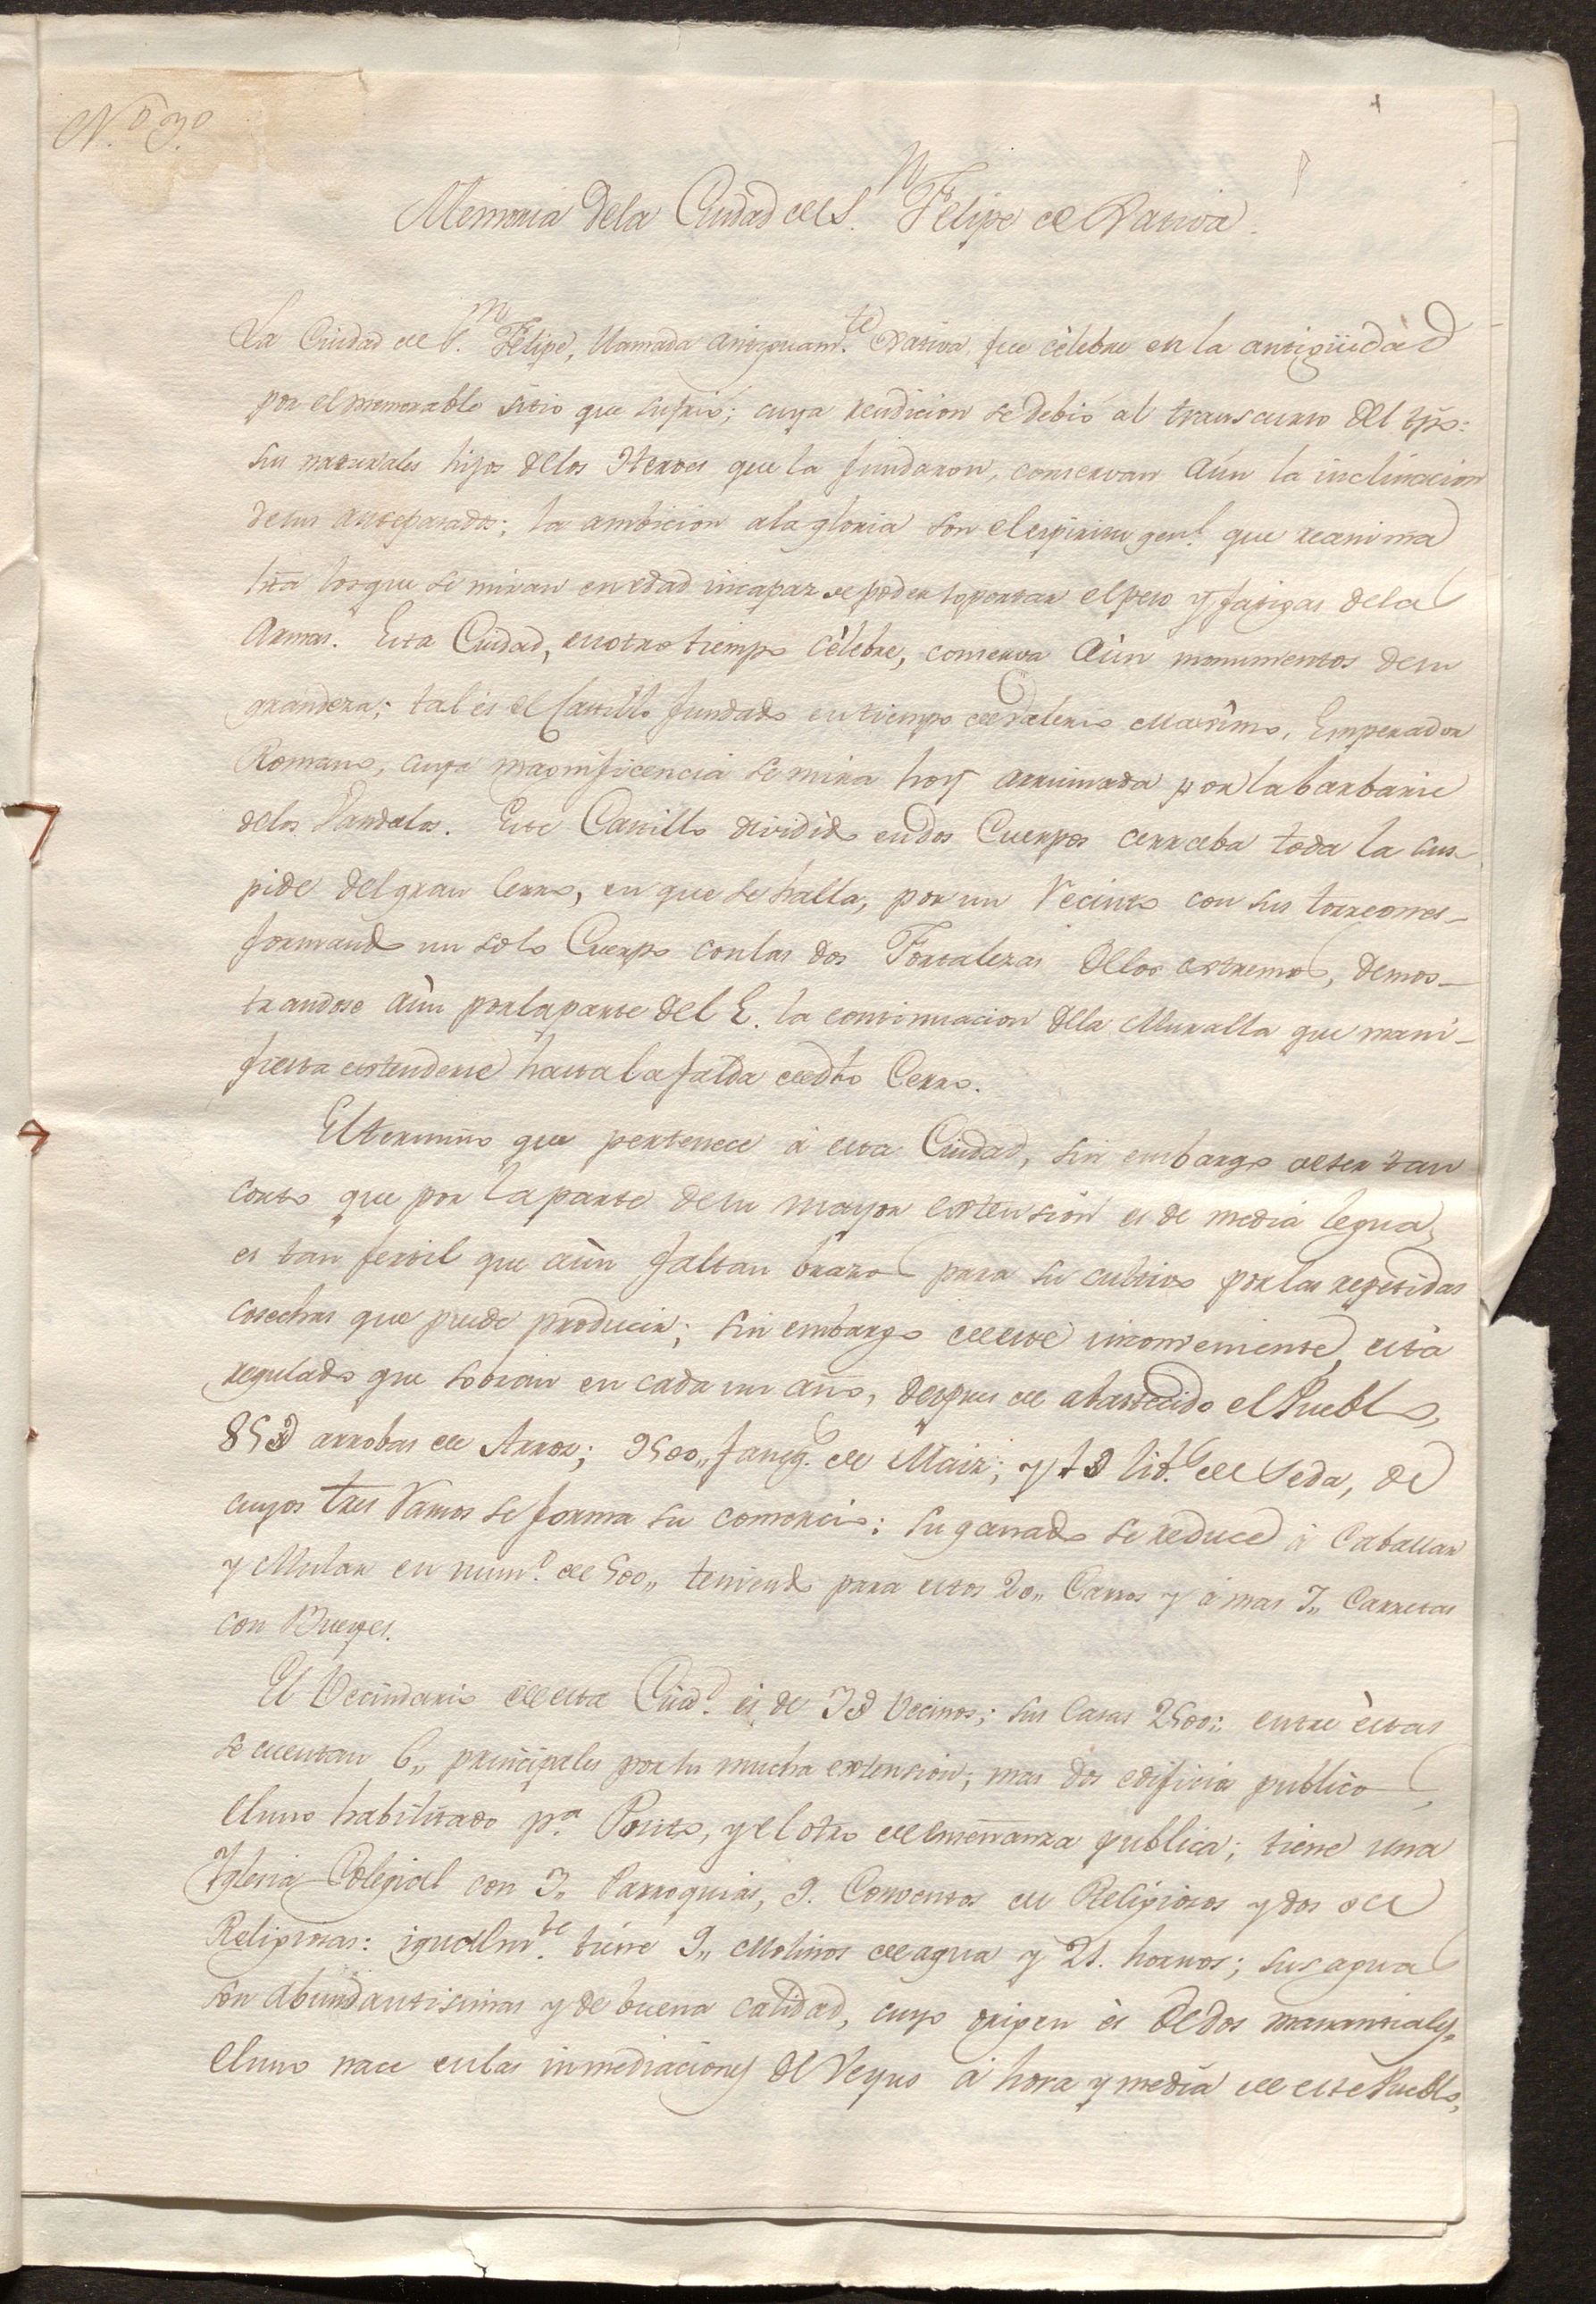 N.º 3.º
Memoria dela Ciudad de S.n Felipe de Xativa.
La Ciudad de S.n Felipe, llamada antiguam.te Xativa, fue cèlebre en la antigüedàd
por el memorable sitio que sufrió; cuya rendicion se debió al transcurso del tpo:
sus naturales hijos delos Heroes que la fundaron, conservan aún la inclinacion
desus antepasados; la ambicion ala gloria son el espiritu gen.l que reanima
hta losque se miran en edad incapaz de poder soportar el peso y fatigas delas
Armas. Esta Ciudad, en otro tiempo cèlebre, conserva aùn monumentos desu
grandeza; tal es el Castillo fundado en tiempo de Valerio Maximo, Emperador
Romano, cuya magnificencia se mira hoy arruinada por la barbarie
delos Vandalos. Este Castillo dividido en dos Cuerpos cerraba toda la cus-
pide del gran Cerro, en que se halla, por un Recinto con sus torreones-
formando un solo Cuerpo con las dos Fortalezas delos extremos, demos-
trandose aùn por la parte del E. la continuacion dela Muralla que mani-
fiesta extenderse hasta la falda de dho Cerro.
El termino que pertenece á esta Ciudad, sin embargo de ser tan
corto que por la parte desu mayor extensión es de media legua,
es tan fertil que aùn faltan brazos para su cultivo por las repetidas
cosechas que puede producir; sin embargo de este inconveniente, està
regulado que sobran en cada un año, despues de abastecido el Pueblo,
85 arrobas de Arroz; 9500,, faneg.s de Maiz; y lib.s de Seda, de
cuyos tres Ramos se forma su comercio: su ganado se reduce à Caballar
y Mular en num.º de 500,, teniendo para estos 20,, Carros y à mas 3,, Carretas
con Bueyes.
El Vecindario de esta Ciud.d es de 3 Vecinos; sus Casas 2500: entre èstas
se cuentan 6,, principales por su mucha extension; mas dos edificios publicos,
el uno habilitado p.a Posito, y el otro de enseñanza publica; tiene una
Iglesia Colegial con 3,, Parroquias, 9. Conventos de Religiosos y dos de
Religiosas: igualm.te tiene 9,, Molinos de agua y 21. hornos; sus aguas
son abundantisimas y de buena calidad, cuyo origen ès dedos manantiales,
el uno nace en las inmediaciones de á hora y media de este Pueblo,